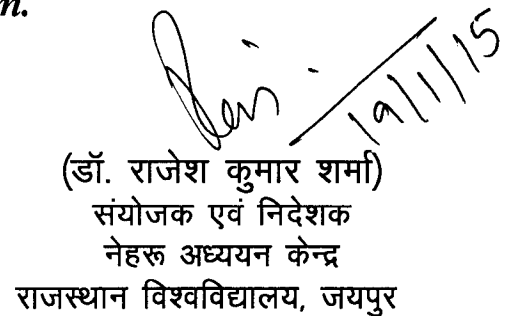 n.
19/1/15
(डॉ. राजेश कुमार शर्मा)
संयोजक एवं निदेशक
नेहरू अध्ययन केन्द्र
राजस्थान विश्वविद्यालय, जयपुर